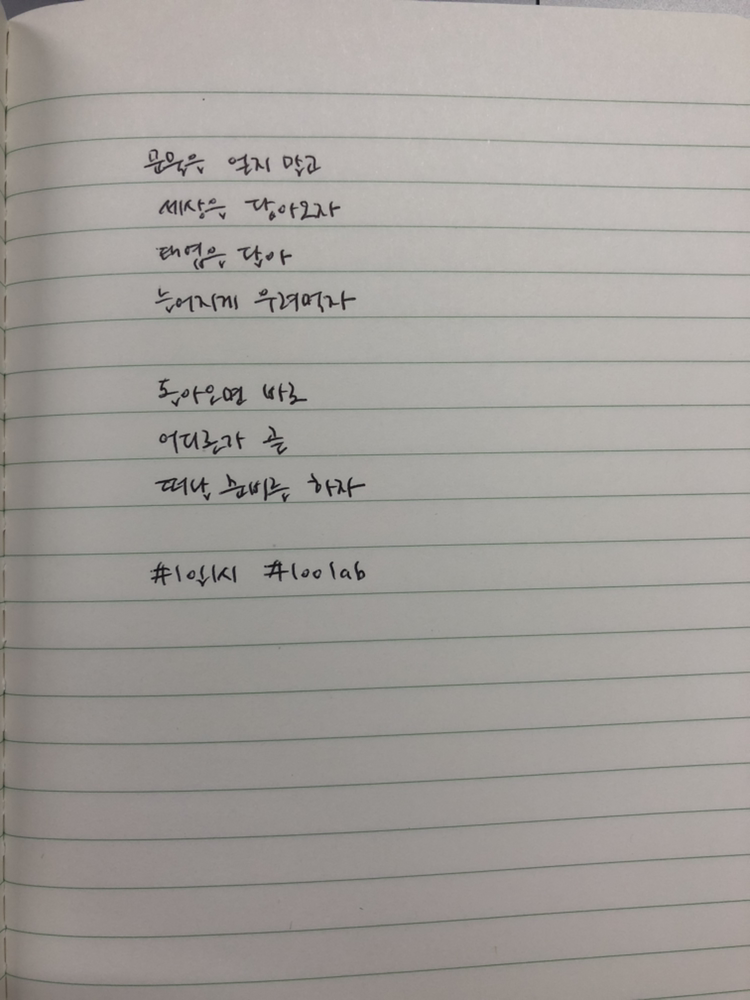 얻지 말고
세상을 담아오자
담아
늘어지게 우려먹자
돌아오면 바로
어디론가 곧
떠날 준비를 하자
#1일1시 #100lab